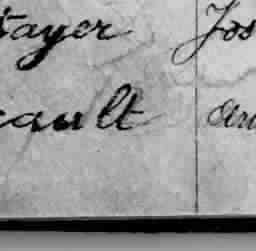 tayer Jos
cault